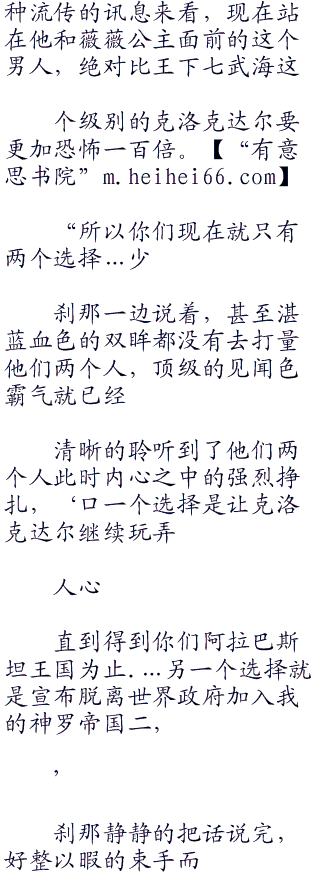 种流传的讯息来看，现在站
在他和薇薇公主面前的这个
男人，绝对比王下七武海这
个级别的克洛克达尔要
更加恐怖一百倍。【“有意
思书院”m.heihei66.com】
“所以你们现在就只有
两个选择…少
刹那一边说着，甚至湛
蓝血色的双眸都没有去打量
他们两个人，顶级的见闻色
霸气就已经
清晰的聆听到了他们两
个人此时内心之中的强烈挣
扎，‘口一个选择是让克洛
克达尔继续玩弄
人心
直到得到你们阿拉巴斯
坦王国为止.…另一个选择就
是宣布脱离世界政府加入我
的神罗帝国二，
，
刹那静静的把话说完，
好整以暇的束手而